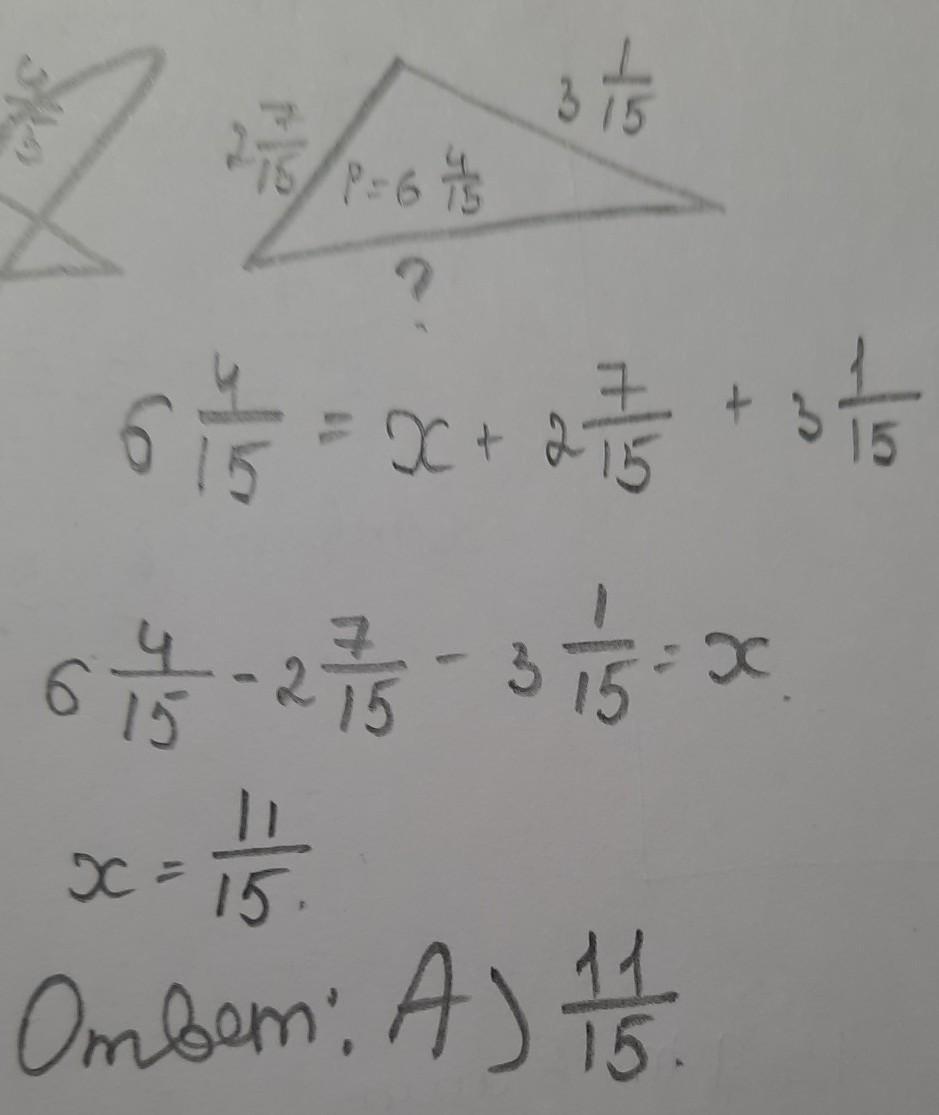 2 7/15
3 1/15
P = 6 4/15
?
6 4/15 = x + 2 7/15 + 3 1/15
6 4/15 - 2 7/15 - 3 1/15 = x.
x = 11/15.
Ответ: А) 11/15.